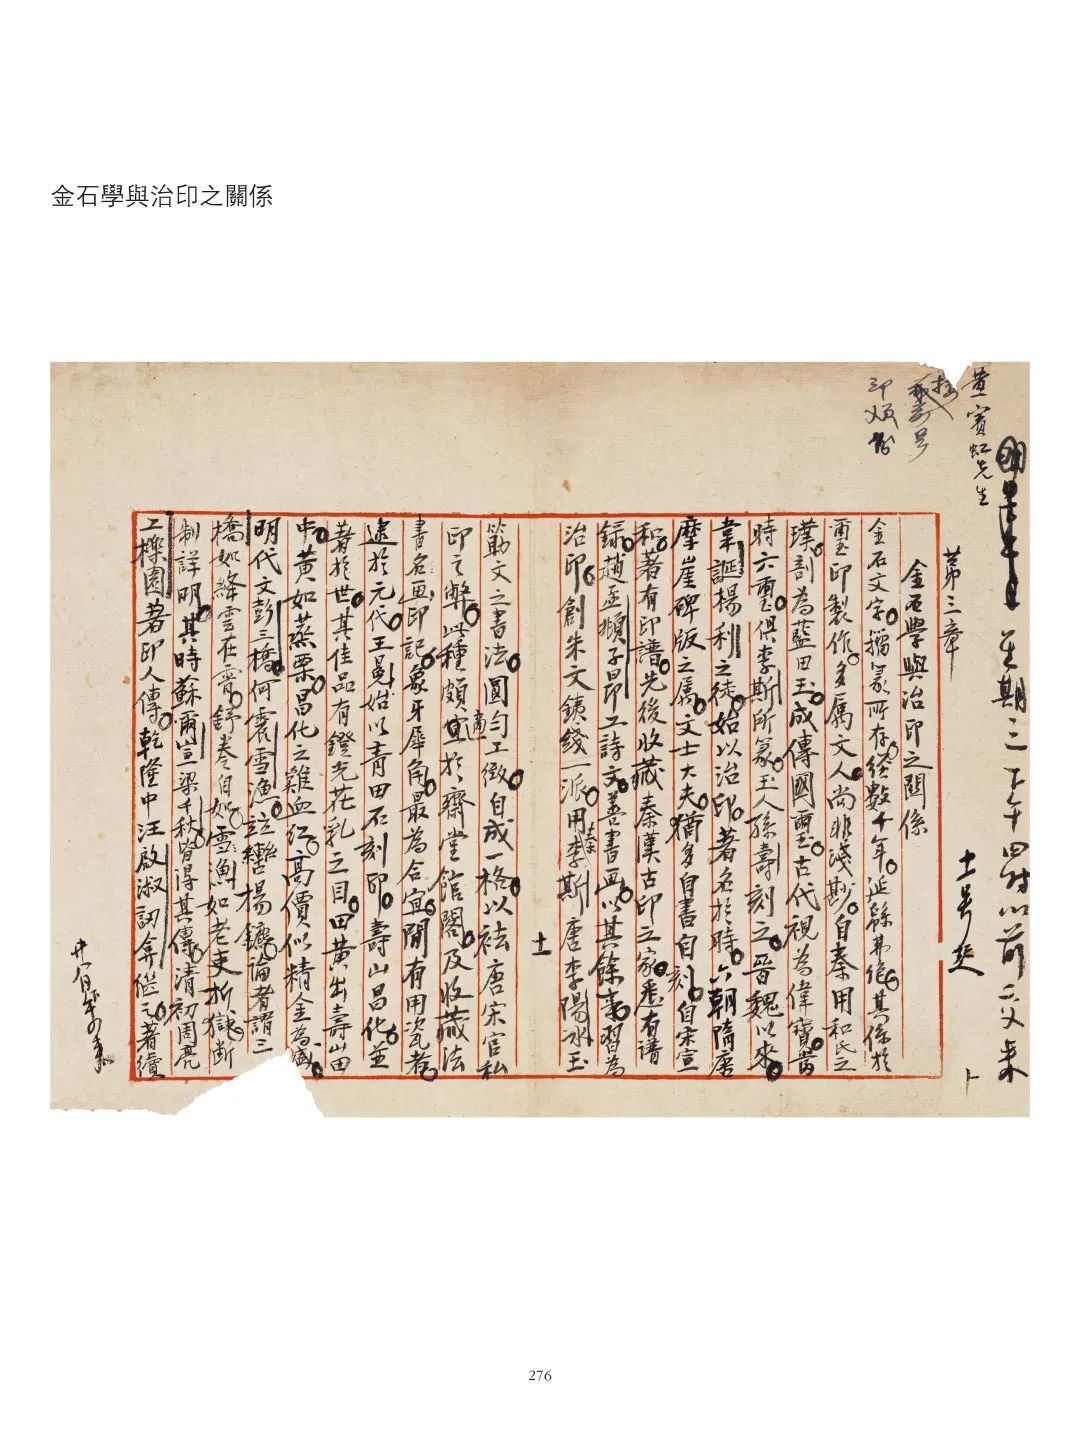 金石學與治印之關係
黃賓虹先生
星期三下午四時以前交來
十一號起
第三章
金石學與治印之關係
金石文字籀篆所存經數千年延緜弗絕其係於
璽印製作多屬文人尚非淺尠自秦用和氏之
璞剖為藍田玉成傳國璽古代視為偉寶當
時六璽俱李斯所篆玉人孫壽刻之晉魏以來
韋誕楊利之徒始以治印著名於時六朝隋唐
摩崖碑版之屬文士大夫猶多自書自刻自宋宣
和著有印譜先後收藏秦漢古印之家悉有譜
錄趙孟頫子昂工詩文善書畫以其餘事習為
治印創朱文鐵綫一派用秦李斯唐李陽冰玉
十一
筯文之書法圓勻工緻自成一格以祛唐宋官私
印之弊此種頗適宜於齋堂館閣及收藏法
書名畫印記象牙犀角最為合宜間有用瓷者
逮於元代王冕始以青田石刻印壽山昌化並
著於世其佳品有鐙光花乳之目田黃出壽山田
中黃如蒸栗昌化之雞血紅高價似精金為盛
明代文彭三橋何震雪漁竝轡揚鑣論者謂三
橋如絳雲在霄舒卷自如雪漁如老吏折獄斷
制詳明其時蘇爾宣梁千秋皆得其傳清初周亮
工櫟園著印人傳乾隆中汪啟淑訒菴繼之著續